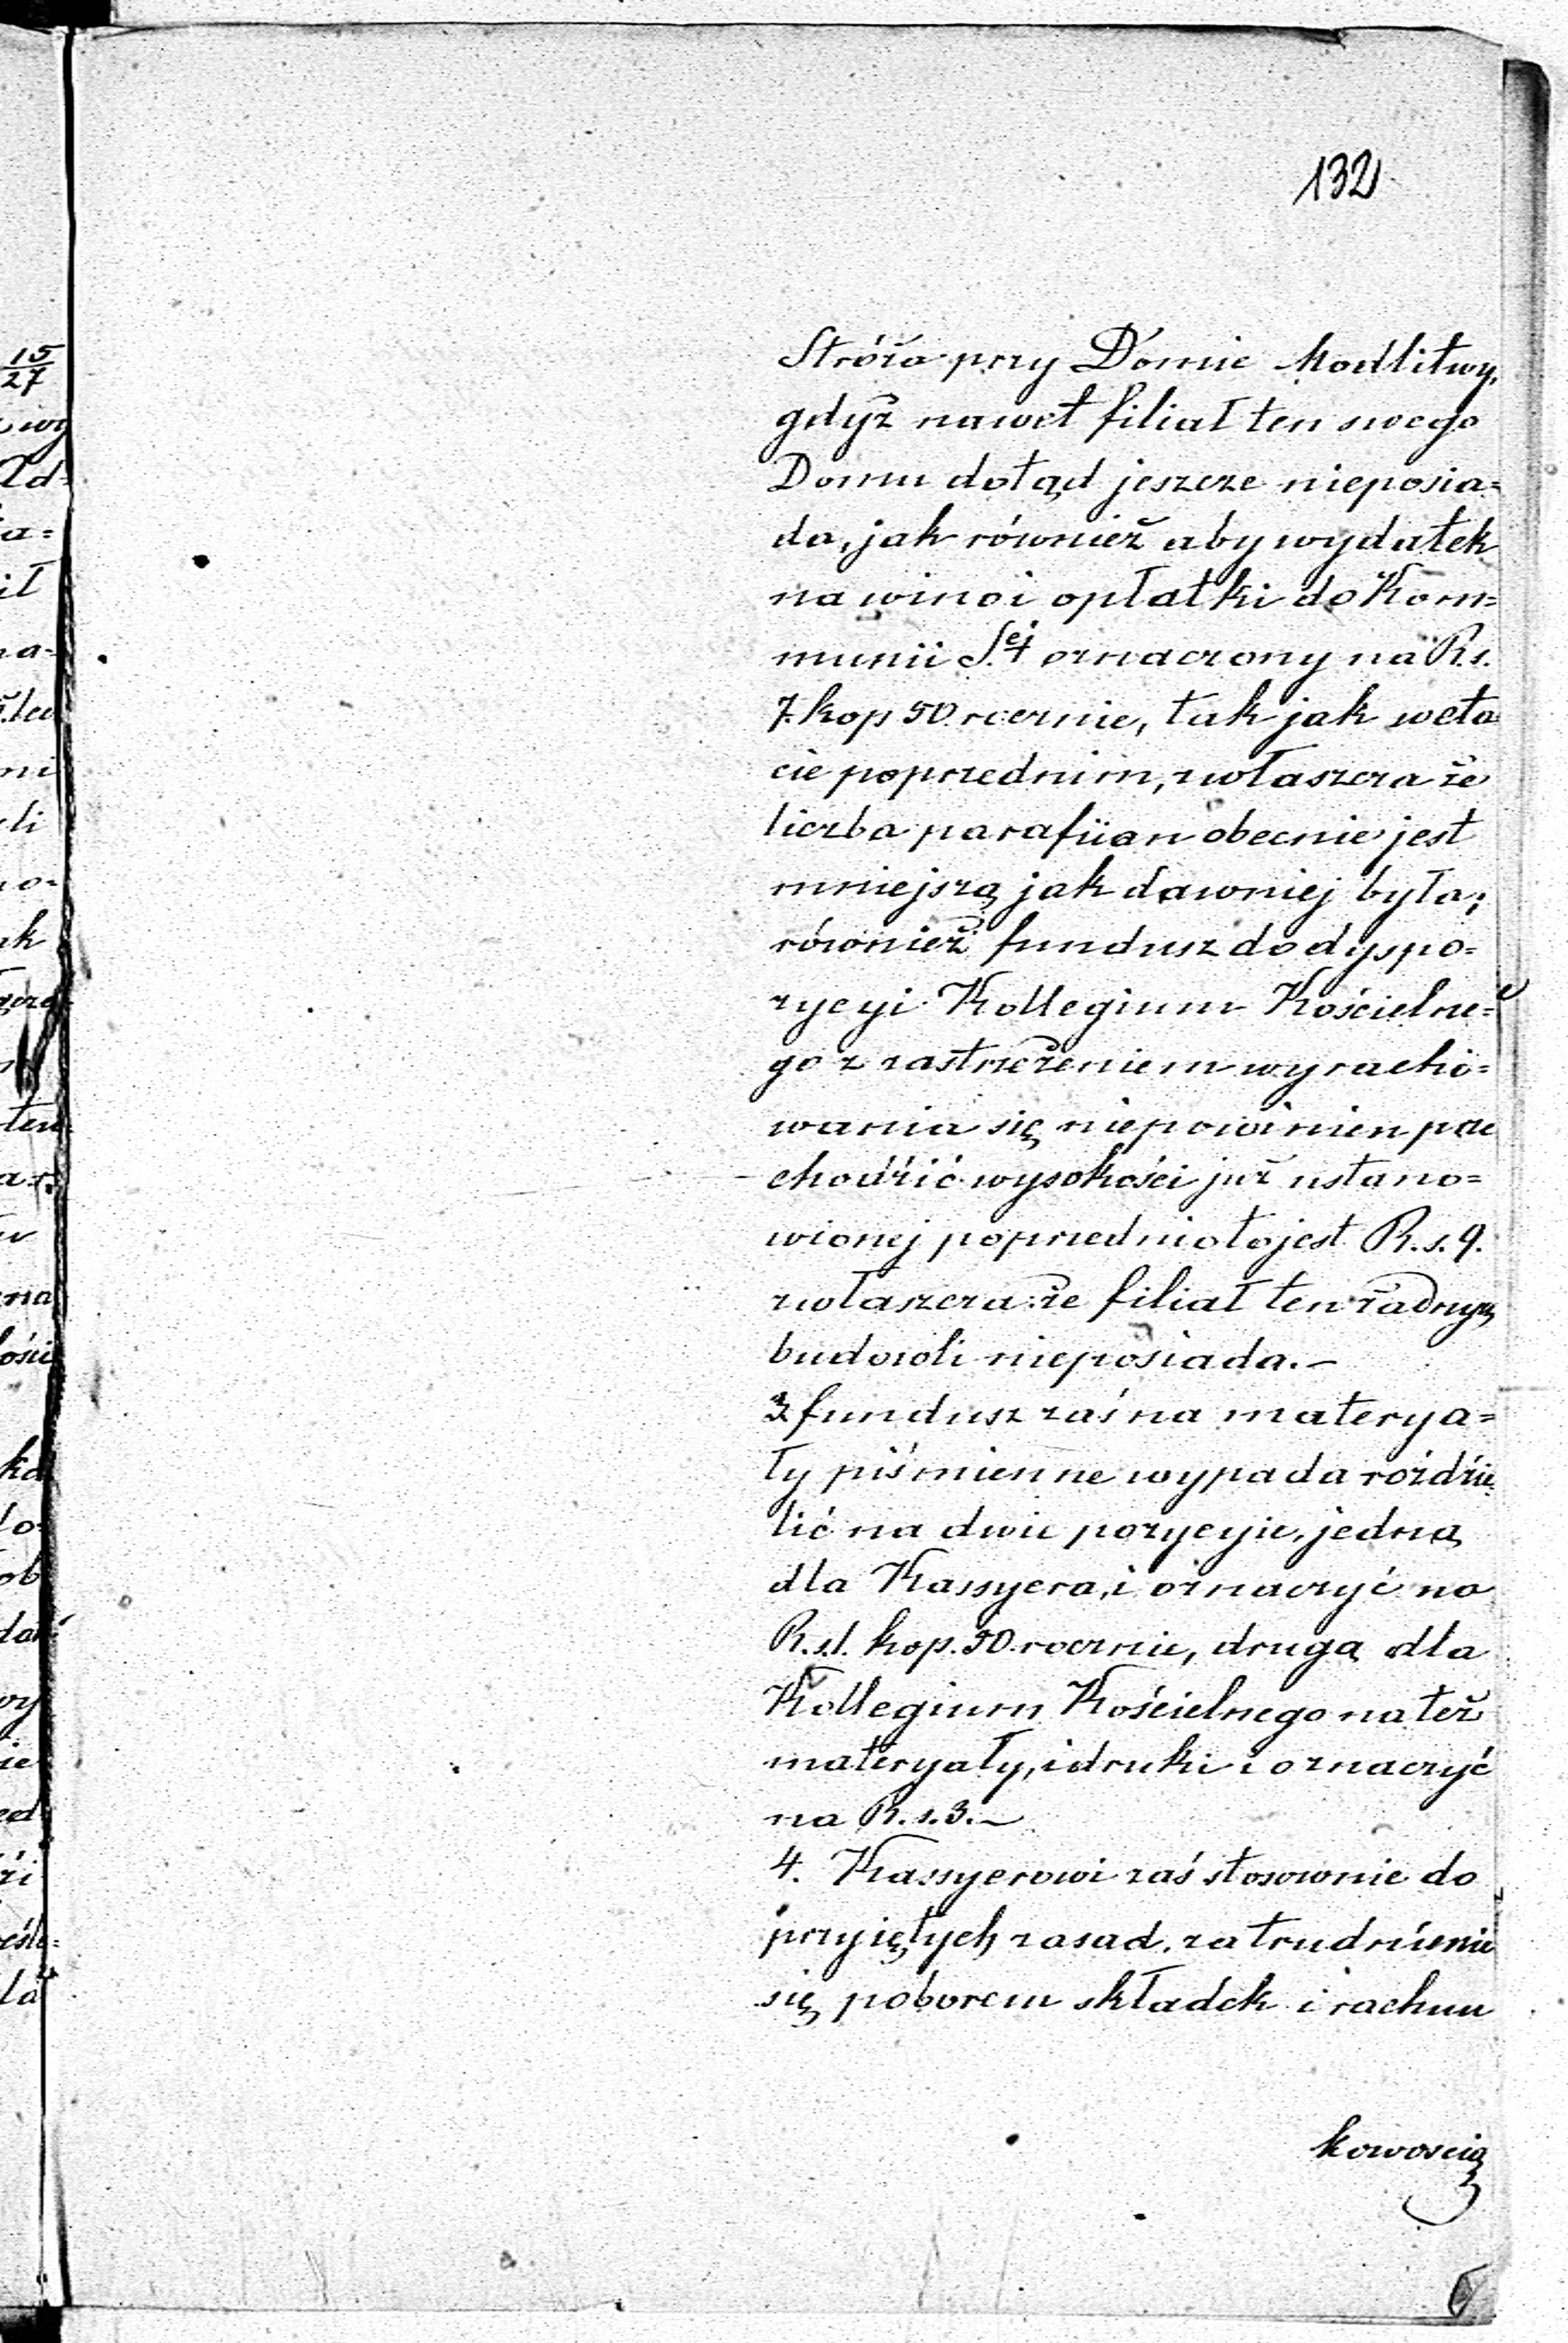 132
Stróża przy Domie Modlitwy,
gdyż nawet filiał ten swego
Domu dotąd jeszcze nieposia=
da, jak również aby wydatek
na wino i opłatki do Kom=
munii S.ej oznaczony na R.s.
7. kop 50. rocznie, tak jak weta
cie poprzednim, zwłaszcza że
liczba parafiian obecnie jest
mniejszą jak dawniej była;
również fundusz do dyspo=
zycyi Kollegium Kościelne=
go z zastrzeżeniem wyracho=
wania się niepowinien prze
chodźić wysokości już ustano=
wionej poprzednio to jest R.s. 9.
zwłaszcza że filiał ten żadnych
budowli nieposiada.—
3. fundusz zaś na materya=
ły piśmienne wypada rozdźie
lić na dwie pozycyie, jedną
dla Kassyera, i oznaczyć na
R.s.1. kop. 50. rocznie, drugą dla
Kollegium Kościelnego na też
materyały, i druki i oznaczyć
na R.s.3.—
4. Kassyerowi zaś stosownie do
przyiętych zasad, za trudnienie
się poborem składek i rachun
kowoscią
15
27
wy
Ad=
a=
ił
a=
ni
li
o=
ak
ten
na
ości
ob
wy
ie
ła